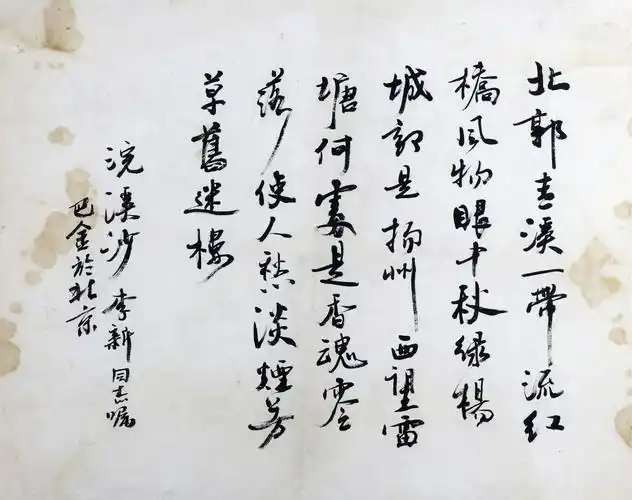 北郭青溪一帶流红
橋風物眼中秋绿楊
城郭是揚州西望雷
塘何處是香魂零
落使人愁淡煙芳
草舊迷樓
浣溪沙 李新同志嘱
巴金於北京